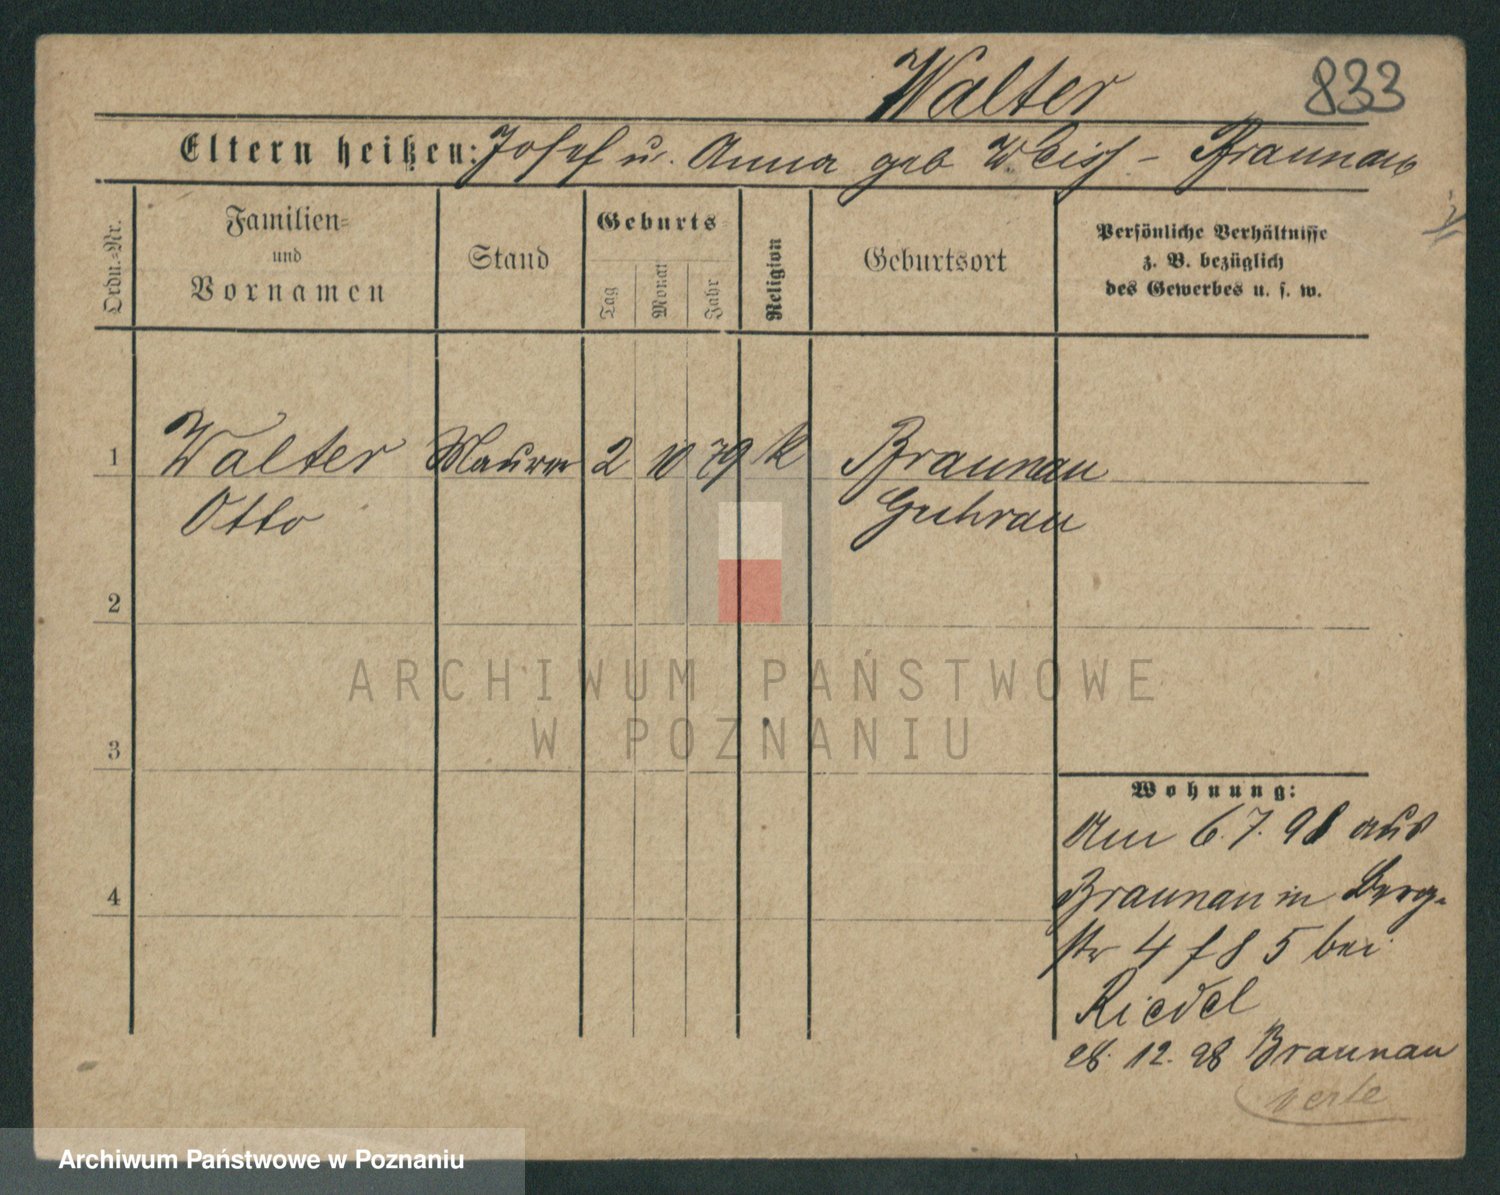 Walter 833
Eltern heißen: Josef u. Anna geb Weiss - Braunau
Ordn.=Nr.
Familien=
und
Vornamen
Stand
Geburts
Tag
Monat
Jahr
Religion
Geburtsort
Persönliche Verhältnisse
z. B. bezüglich
des Gewerbes u. s. w.
1 Walter Maurer 2 10 79 k Braunau
Otto Guhrau
2
ARCHIWUM PAŃSTWOWE
W POZNANIU
3
Wohnung:
Am 6.7.98 aus
Braunau in Berg-
str 4 f 8 5 bei
4
Riedel
28. 12. 98 Braunau
Archiwum Państwowe w Poznaniu